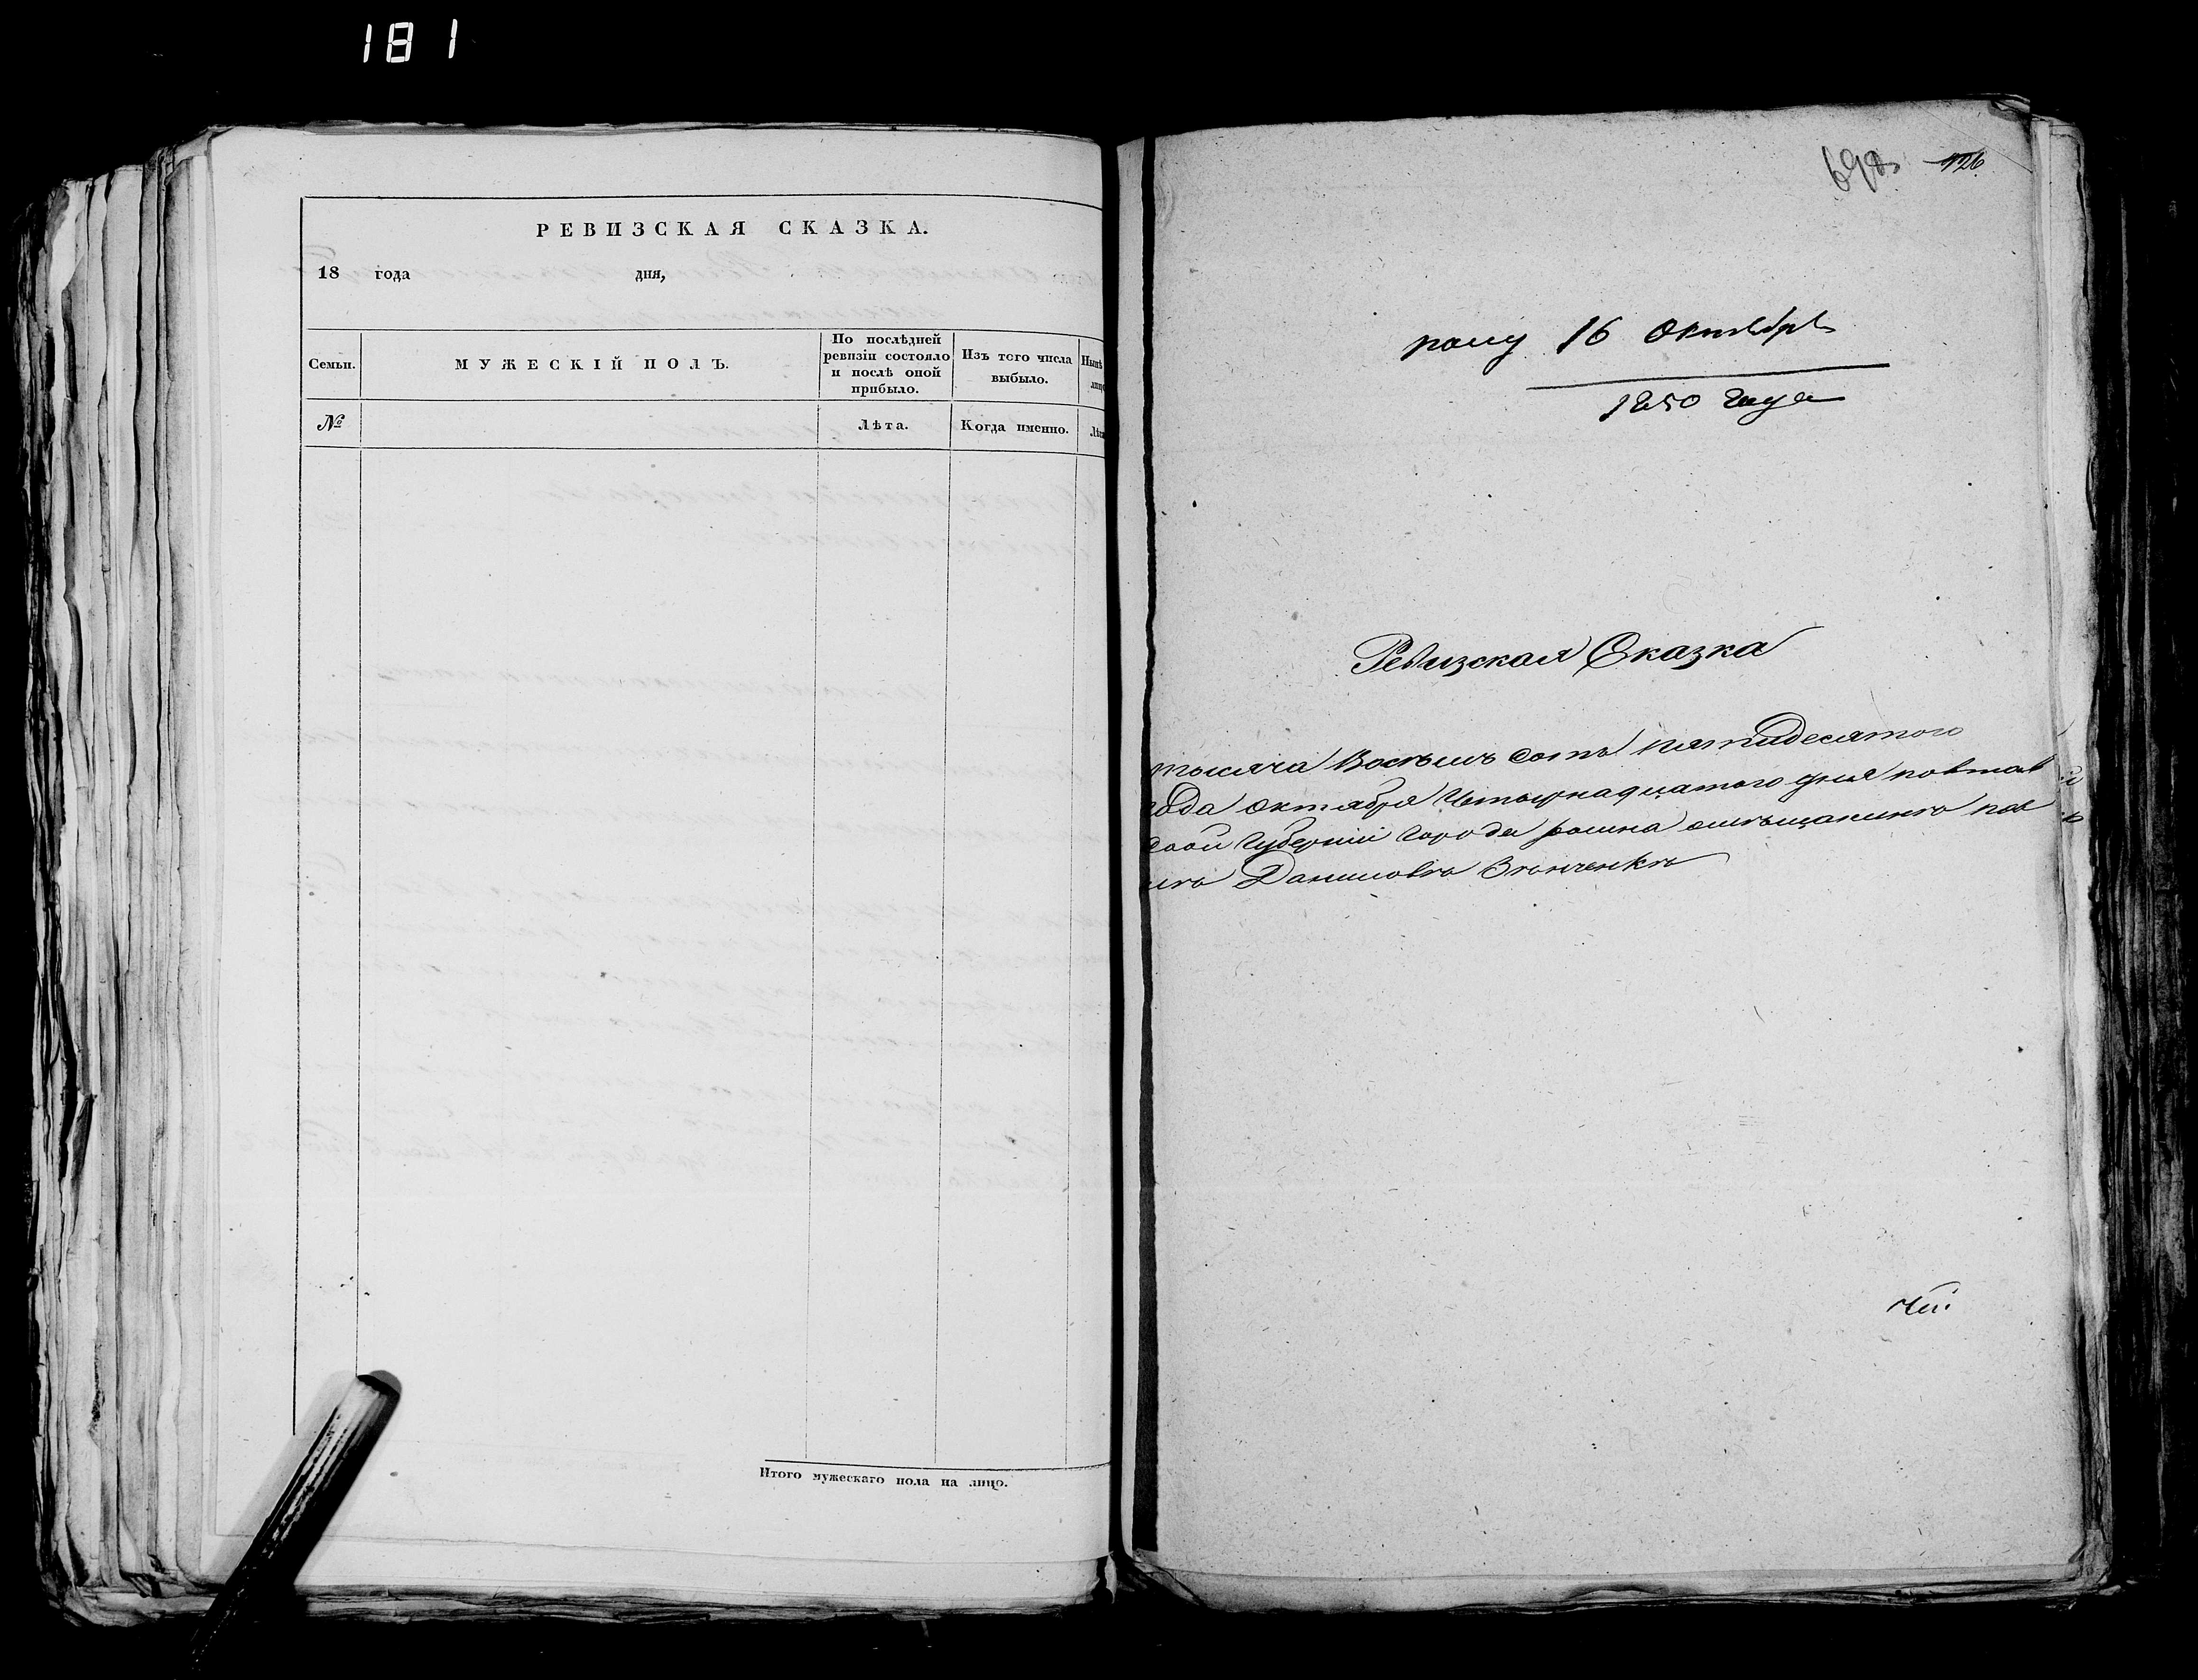 181
РЕВИЗСКАЯ СКАЗКА.
18 года дня,
Семьи.
МУЖЕСКІЙ ПОЛЪ.
По послѣдней ревизіи состояло и послѣ оной прибыло.
Изъ того числа выбыло.
№
Лѣта.
Когда именно.
Итого мужескаго пола на лицо.
698
426
16 Октября
1850 года
Ревизская Сказка
тысяча Восемь сотъ пятидесятого
года октября Четырнадцатого дня полтав
ской Губерніи Города ромна омѣщанинѣ
Даниловѣ